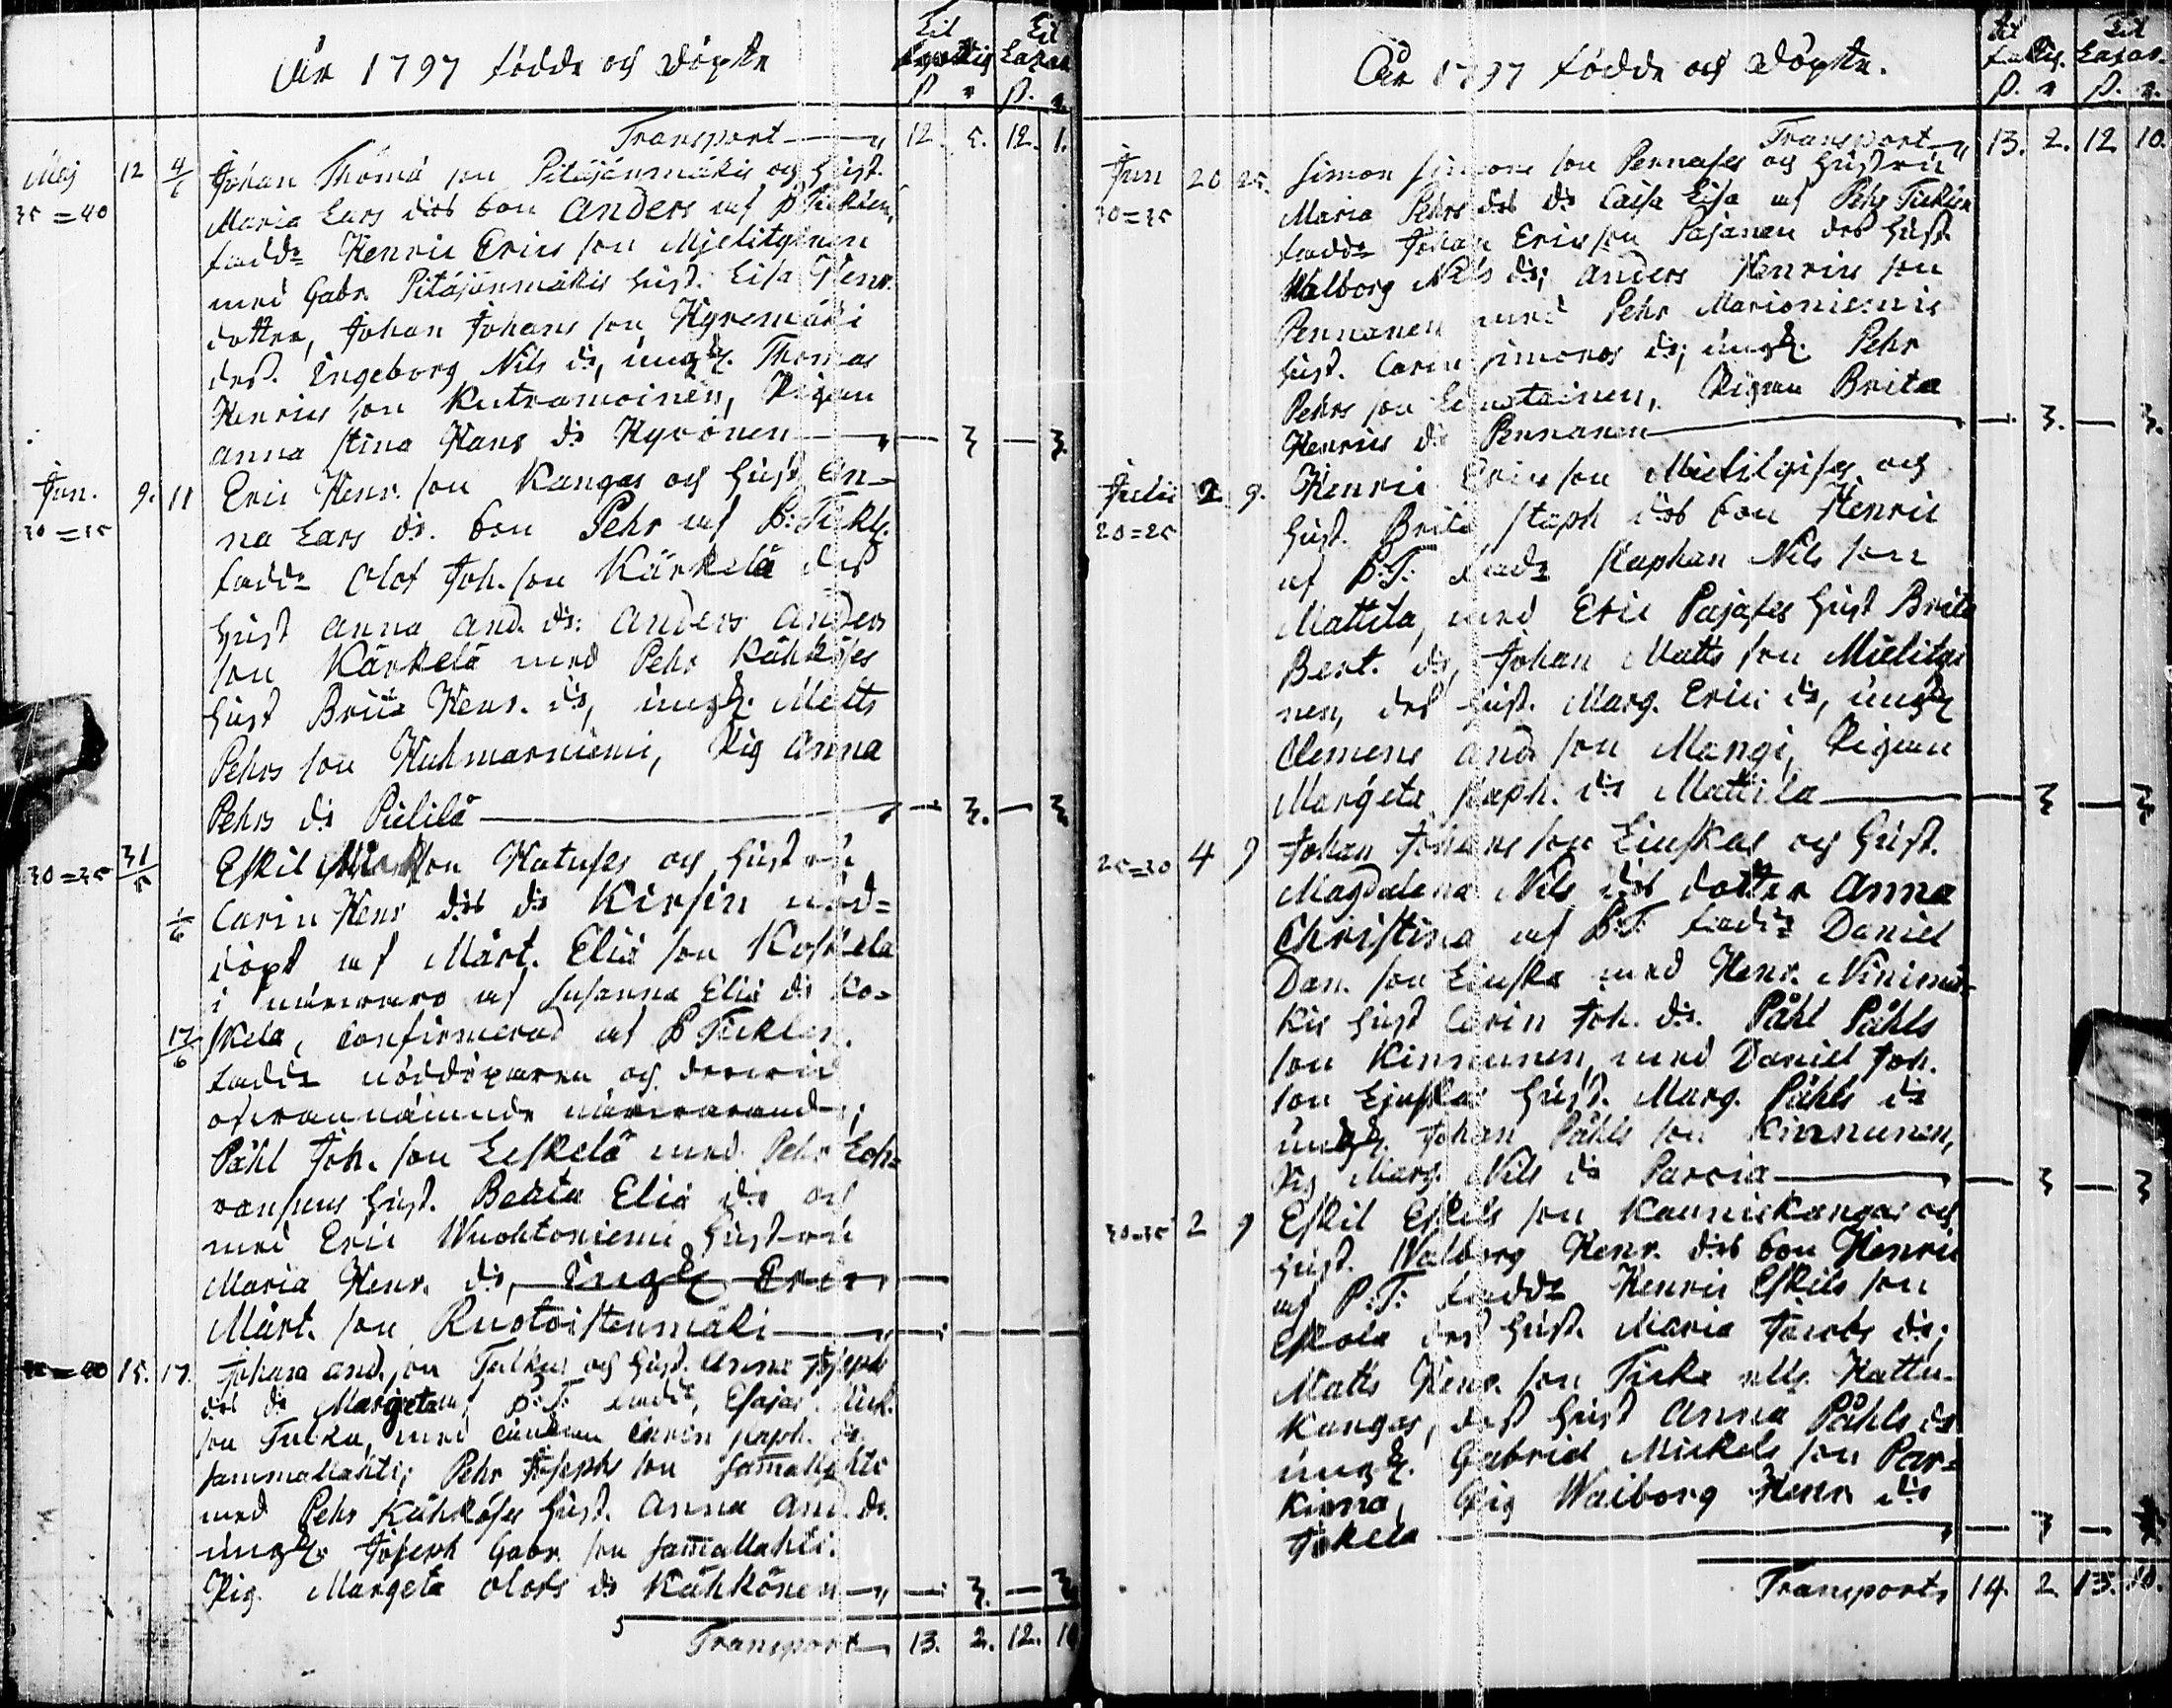 År 1797 födde och döpte
Til Til
Lazar.
ß. r. ß. r.
Transport 12. 5. 12. 1.
Maj 12 4/6 Johan Thomä son Pitäjänmäkis och hust.
35=40 Maria Lars dr bon Anders af P Ticklen,
fadd. Henric Erics son Mjelitynen
med Gabr. Pitäjänmäkis hust. Lisa Henr.
dotter, Johan Johans son Kyromäki
dess. Ingeborg Nils dr, ungk. Thomas
Henrics son Kutramoinen, Pigan
Anna Stina Hans dr Hyvönen — 3 — 3.
Jun. 9. 11 Eric Henr. son Kangas och hust. An=
30=35 na Lars dr. bon Pehr af P: Tickl.
fadd. Olof Joh. son Kärkelä dess
hust Anna And. dr: Anders Anders
son Kärkelä med Pehr Kähköses
hust Brita Henr. dr, ungk. Matts
Pehrs son Kuhmarniemi, Pig Anna
Pehrs dr Pielilä — 3. — 3
30=35 31/5 Eskil son Hatuses och hustru
1/6 Carin Henr drs dr Kirstin nöd=
döpt af Mårt. Eliä son Koskela
i närvaro af Susanna Eliä dr Ko=
17/6 skela, confirmerad af P Ticklen.
fadd. nöddöparen och
ofvannämnde närvarande;
Påhl Joh. son Leskelä med Pehr Loh=
ransens hust. Beata Eliä dr och
med Eric Wuohtoniemi hustru
Maria Henr. dr, ungk Eric
Mårt. son Ruotoistenmäki
=40 15. 17. Johan And. son Tulkus och hust. Anna Joseph
drs dr Margeta af P:T. fadd. Esajas Mick.
son Tulku, med Carin Staph. dr.
Sammallahti; Pehr Josephs son Samallahti
med Pehr Kähköses hust. Anna And. dr.
ungk. Joseph Gabr. son Samallahti.
Pig. Margeta Olofs dr Kähkönen — 3. — 3
Transport 13. 2. 12. 10
År 1797 födde och döpte.
Til Til
Lazar.
ß. r. ß. r.
Transport 13. 2. 12. 10.
Jun 20 25. Simon Simons son Pennases och hustru
30=35 Maria Pehrs drs dr Caisa Lisa af Pehr Ticklen
fadd. Johan Erics son Pajanen dess hust.
Walborg Nils dr; Anders Henrics son
Pennanen med Pehr Marioniemis
hust. Carin Simons dr; ungk. Pehr
Pehrs son, Pigan Brita
Henrics dr Pennanen — 3. — 3.
Julii 2 9. Henric Erics son Mielityises och
20=25 hust. Brita Staph drs bon Henric
af P:T: fadd. Staphan Nils son
Mattila, med Eric Pajases hust Brita
Bert. dr, Johan Matts son Mielity
nen, dess hust. Marg. Erics dr, ungk
Clemens And son Mangi, Pigan
Margeta Staph. dr Mattila — 3 — 3
25=30 4 9 Johan Johans son Liuskas och hust.
Magdalena Nils drs dotter Anna
Christina af P:T. fadd. Daniel
Dan. son Liuska med Henr. Niinimä=
kis hust Carin Joh. dr. Påhl Påhls
son Kinnunen, med Daniel Joh.
son Liuskas hust. Marg. Påhls dr
ungk. Johan Påhls son Kinnunen,
Pig Marg. Nils dr Parcia — 3 — 3
30=35 2 9 Eskil Eskils son Kauniskangas och
hust. Walborg Henr. drs bon Henric
af P:T: fadd. Henric Eskils son
Eskola dess hust. Maria Jacobs dr;
Matts Henr. son Ticka ell. Kattu=
kangas, dess hust Anna Påhls dr
ungk. Gabriel Mickels son Par=
kinna, Pig Walborg Henr. dr
Jokela
Transports 14. 2. 13. 10.